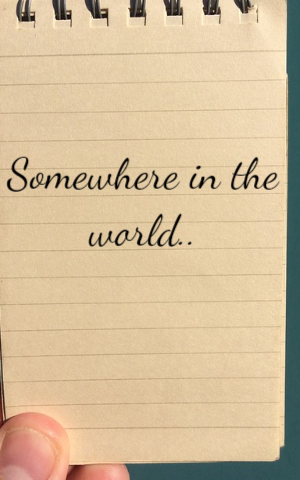 Somewhere in the
world..